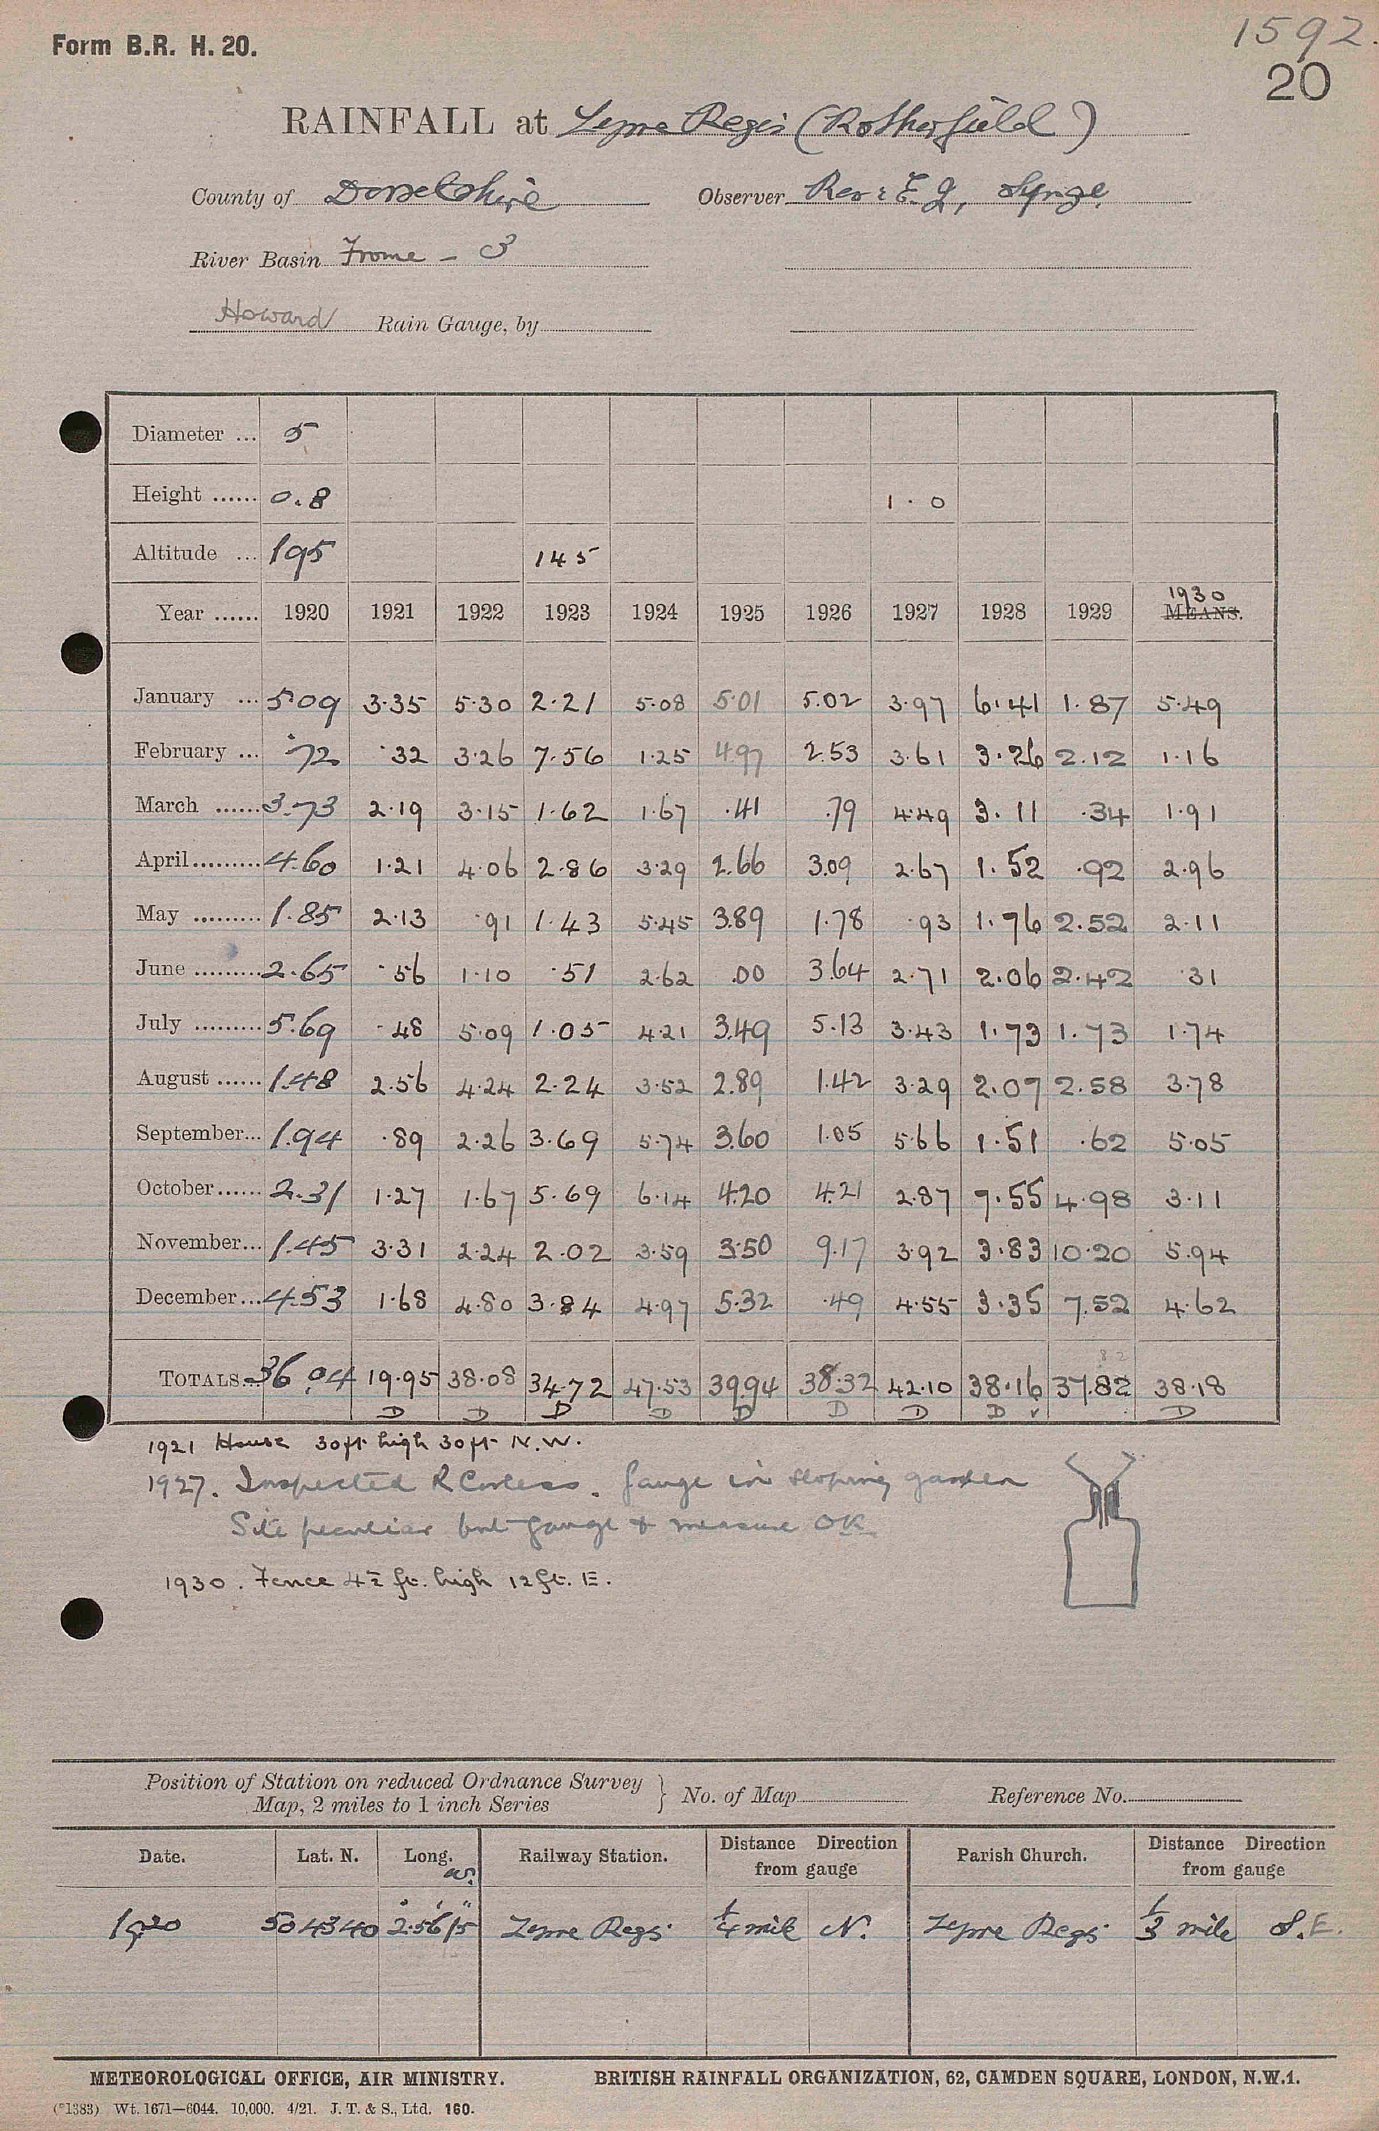 Form B.R. H. 20.
1592.
20
RAINFALL at Lyme Regis (Rotherfield)
County of Dorsetshire Observer Rev: E. G. Synge.
River Basin Frome - 3
Howard Rain Gauge, by
Diameter ... 5
Height ...... 0.8 1.0
Altitude ... 195 145
Year ...... 1920 1921 1922 1923 1924 1925 1926 1927 1928 1929 1930 MEANS.
January ... 5.09 3.35 5.30 2.21 5.08 5.01 5.02 3.97 6.41 1.87 5.49
February ... .72 .32 3.26 7.56 1.25 4.97 2.53 3.61 3.26 2.12 1.16
March ...... 3.73 2.19 3.15 1.62 1.67 .41 .79 4.49 3.11 .34 1.91
April ......... 4.60 1.21 4.06 2.86 3.29 2.66 3.09 2.67 1.52 .92 2.96
May ......... 1.85 2.13 .91 1.43 5.45 3.89 1.78 .93 1.76 2.52 2.11
June ......... 2.65 .56 1.10 .51 2.62 .00 3.64 2.71 2.06 2.42 .31
July ......... 5.69 .48 5.09 1.05 4.21 3.49 5.13 3.43 1.73 1.73 1.74
August ...... 1.48 2.56 4.24 2.24 3.52 2.89 1.42 3.29 2.07 2.58 3.78
September... 1.94 .89 2.26 3.69 5.74 3.60 1.05 5.66 1.51 .62 5.05
October ...... 2.31 1.27 1.67 5.69 6.14 4.20 4.21 2.87 7.55 4.98 3.11
November... 1.45 3.31 2.24 2.02 3.59 3.50 9.17 3.92 3.83 10.20 5.94
December... 4.53 1.68 4.80 3.84 4.97 5.32 .49 4.55 3.35 7.52 4.62
82
TOTALS... 36.04 19.95 38.08 34.72 47.53 39.94 38.32 42.10 38.16 37.82 38.18
D D D D D D D D v D
1921 House 30ft high 30ft N.W.
1927. Inspected R Corless. Gauge in sloping garden
Site peculiar but gauge & measure OK
1930. Fence 4½ ft. high 12 ft. E.
Position of Station on reduced Ordnance Survey Map, 2 miles to 1 inch Series } No. of Map Reference No.
Date. Lat. N. Long. W. Railway Station. Distance Direction from gauge Parish Church. Distance Direction from gauge
1920 50 43 40 2° 56' 15" Lyme Regis ¼ mile N. Lyme Regis ⅓ mile S.E.
METEOROLOGICAL OFFICE, AIR MINISTRY. BRITISH RAINFALL ORGANIZATION, 62, CAMDEN SQUARE, LONDON, N.W.1.
(*1383) Wt. 1671—6044. 10,000. 4/21. J. T. & S., Ltd. 160.